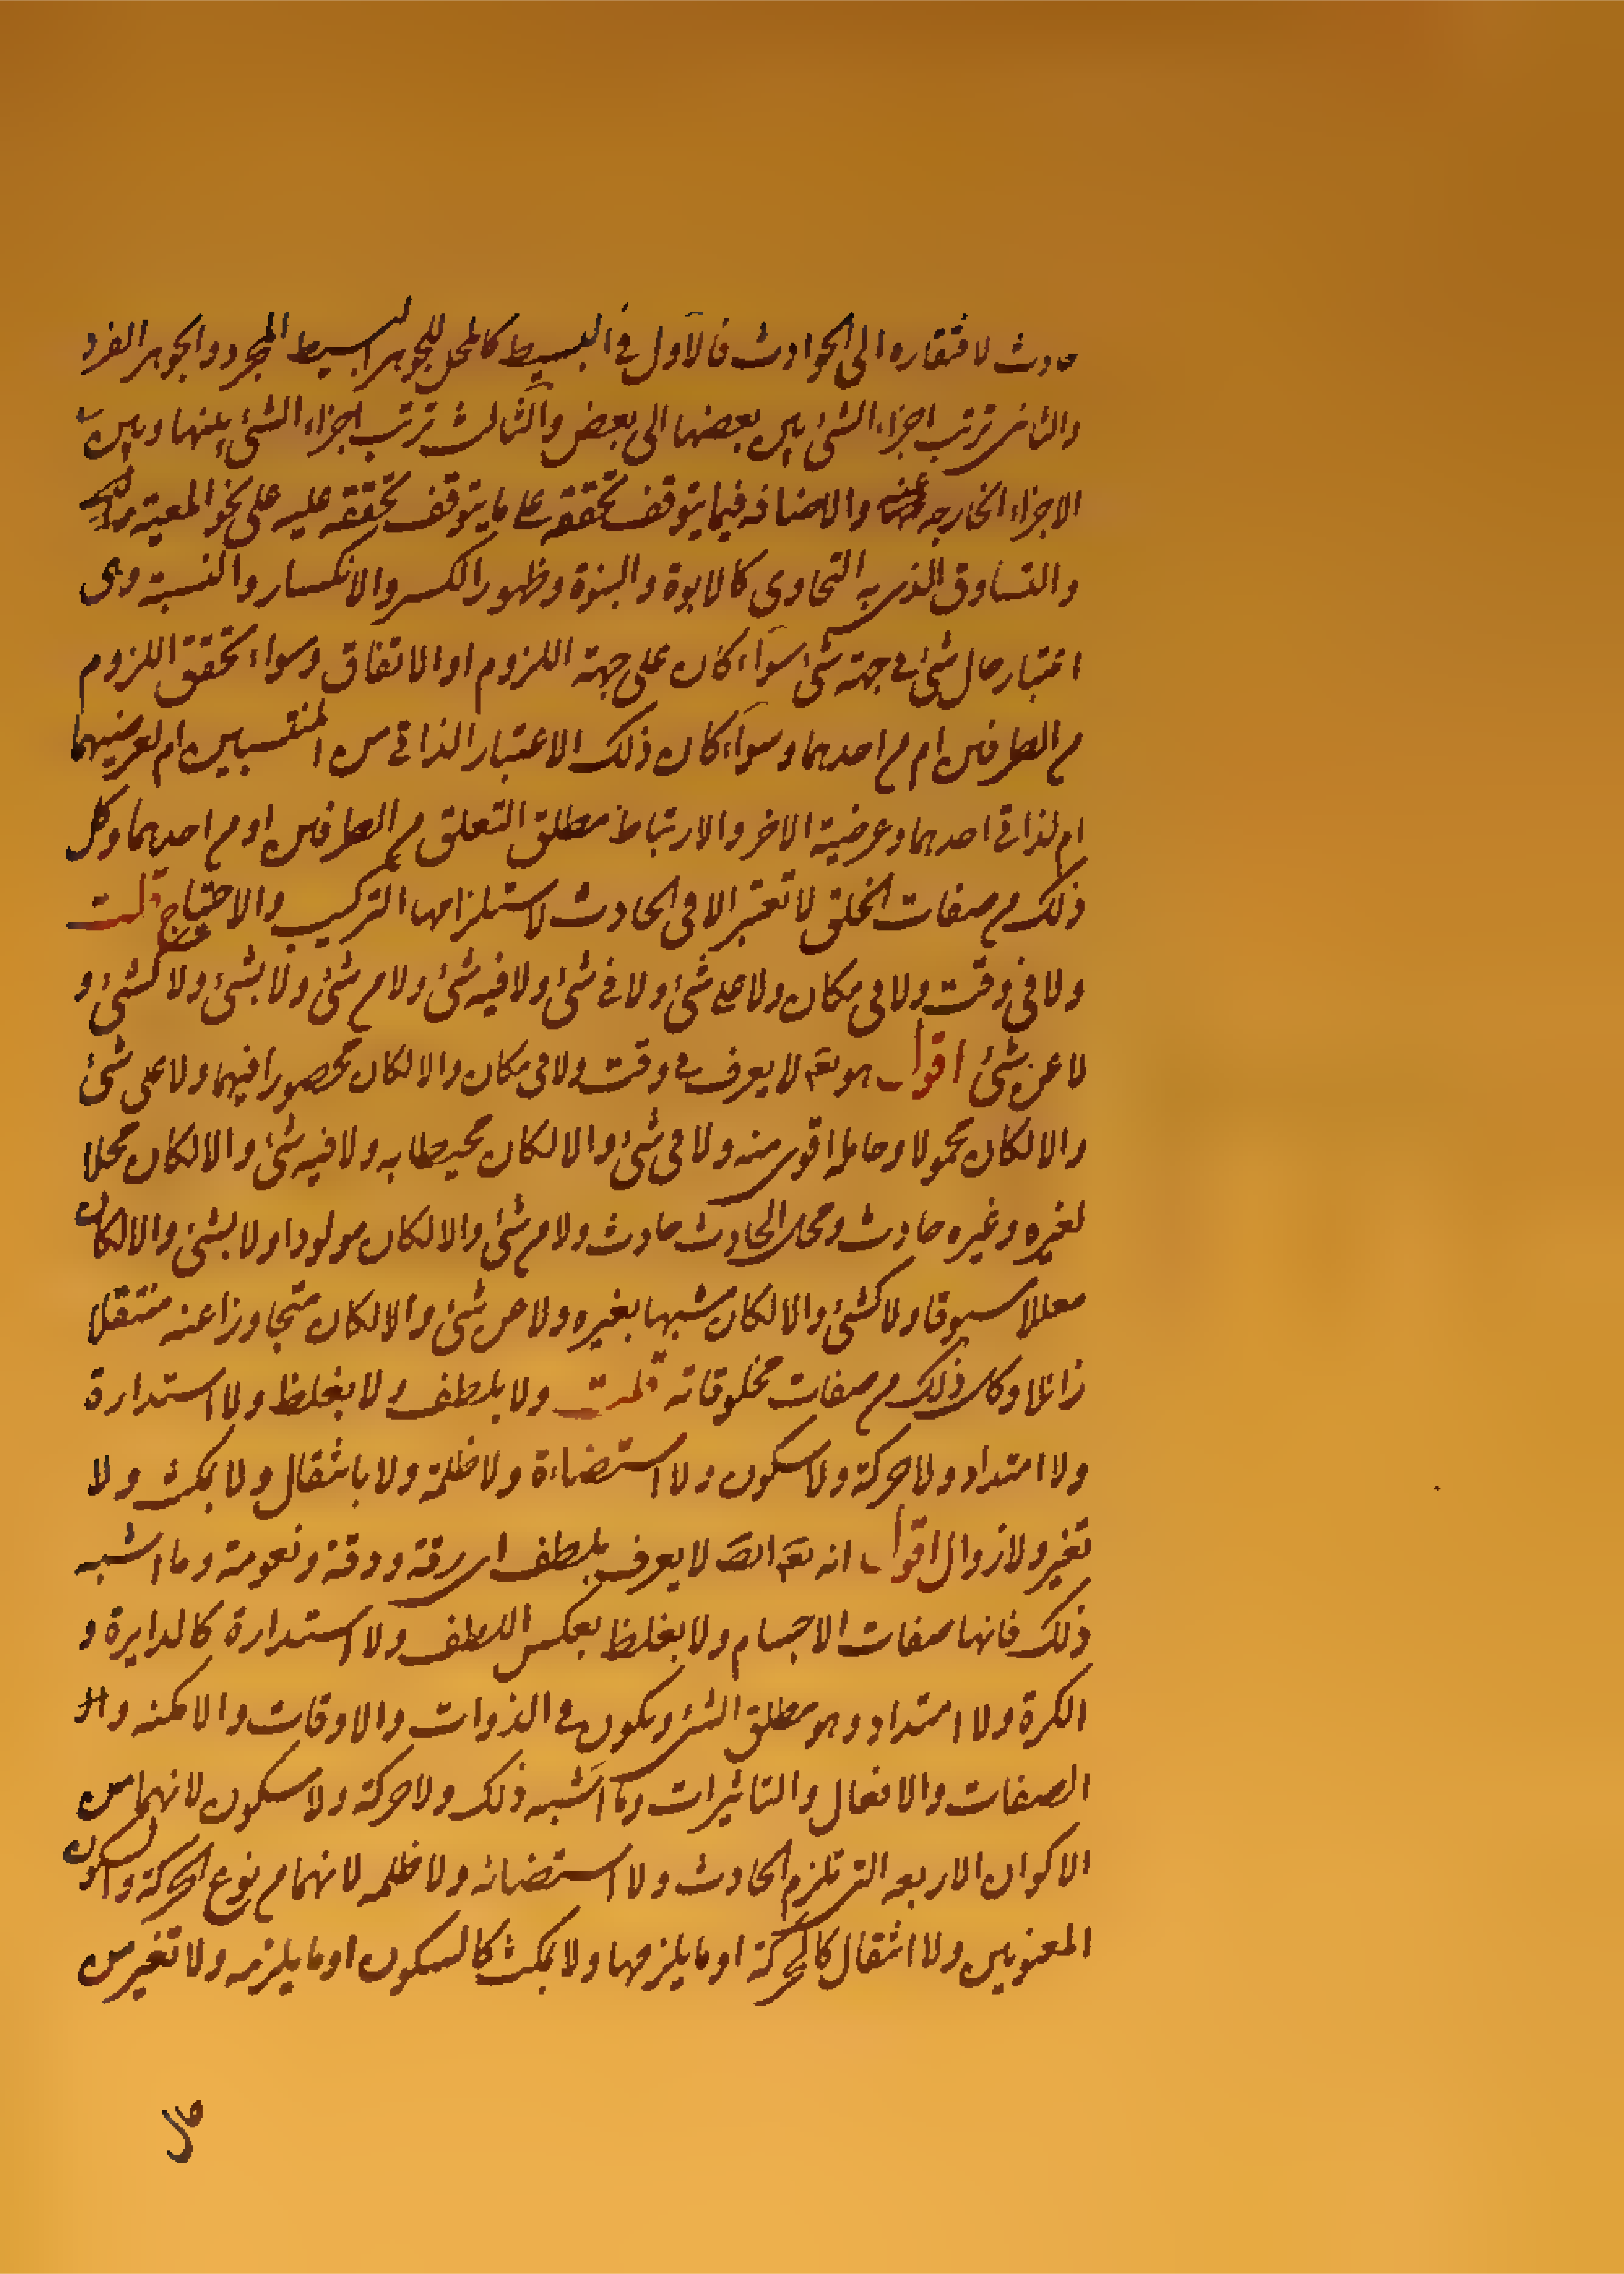 حادث لافتقاره الى الحوادث فالاول فى البسيط كالمحل للجوهر البسيط المجرد والجوهر الفرد
والثانى ترتب اجزاء الشئ بين بعضها الى بعض والثالث ترتب اجزاء الشئ بينها وبين
الاجزاء الخارجه عنه والاضافه فيما يتوقف تحققه على ما يتوقف تحققه عليه على نحو المعية
والتساوق الذى به التحاوى كالابوة والبنوة وظهور الكسر والانكسار والنسبة وهى
اعتبار حال شئ فى جهة شئ سواء كان على جهة اللزوم او الاتفاق وسواء تحقق اللزوم
من الطرفين ام من احدهما وسواء كان ذلك الاعتبار الذاتى من المنتسبين ام لعرضيهما
ام لذاتى احدهما وعرضية الاخر والارتباط مطلق التعلق من الطرفين او من احدهما وكل
ذلك من صفات الخلق لا تعتبر الا فى الحادث لاستلزامها التركيب والاحتياج قلت
ولا فى وقت ولا فى مكان ولا على شئ ولا فى شئ ولا فيه شئ ولا من شئ ولا بشئ ولا كشئ و
لا عن شئ اقول هو تعه لا يعرف فى وقت ولا فى مكان والا لكان محصورا فيهما ولا على شئ
والا لكان محمولا وحامله اقوى منه ولا فى شئ والا لكان محيطا به ولا فيه شئ والا لكان محلا
لغيره وغيره حادث ومحل الحادث حادث ولا من شئ والا لكان مولودا ولا بشئ والا لكان
معللا مسبوقا ولا كشئ والا لكان مشبها بغيره ولا عن شئ والا لكان متجاوزا عنه منتقلا
زائلا وكل ذلك من صفات مخلوقاته قلت ولا بلطف ولا بغلظ ولا استدارة
ولا امتداد ولا حركة ولا سكون ولا استضاءة ولا ظلمة ولا بانتقال ولا بمكث ولا
تغير ولا زوال اقول انه تعه ايضه لا يعرف بلطف اى رقة ودقة ونعومة وما اشبه
ذلك فانها صفات الاجسام ولا بغلظ بعكس اللطف ولا استدارة كالدايرة و
الكرة ولا امتداد وهو مطلق الشئ ويكون فى الذوات والاوقات والامكنه و
الصفات والافعال والتاثيرات وما اشبه ذلك ولا حركة ولا سكون لانهما من
الاكوان الاربعه التى تلزم الحادث ولا استضائه ولا ظلمه لانهما من نوع الحركة والسكون
المعنويين ولا انتقال كالحركة او ما يلزمها ولا بمكث كالسكون او ما يلزمه ولا تغير من